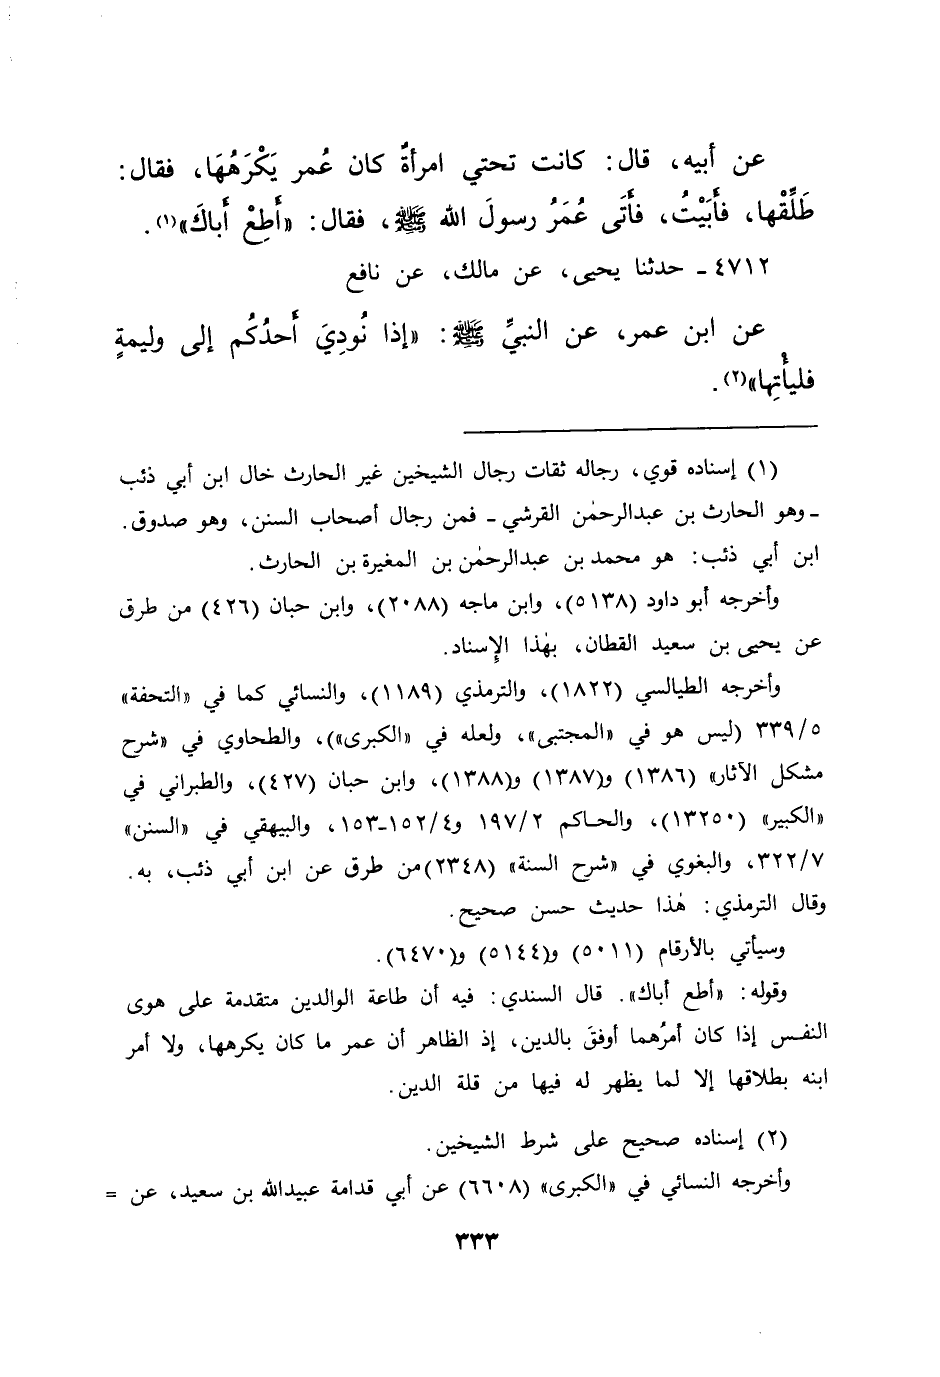 عن أبيه، قال: كانت تحتي امرأةٌ كان عُمر يَكْرَهُهَا، فقال:
طَلِّقْها، فأَبَيْتُ، فأَتَى عُمَرُ رسولَ الله ﷺ، فقال: «أَطِعْ أَباكَ»(١).
٤٧١٢ ـ حدثنا يحيى، عن مالك، عن نافع
عن ابن عمر، عن النبيِّ ﷺ: «إذا نُودِيَ أَحدُكُم إلى وليمةٍ
فليأْتِها»(٢).
(١) إسناده قوي، رجاله ثقات رجال الشيخين غير الحارث خال ابن أبي ذئب
ـ وهو الحارث بن عبدالرحمٰن القرشي ـ فمن رجال أصحاب السنن، وهو صدوق.
ابن أبي ذئب: هو محمد بن عبدالرحمٰن بن المغيرة بن الحارث.
وأخرجه أبو داود (٥١٣٨)، وابن ماجه (٢٠٨٨)، وابن حبان (٤٢٦) من طرق
عن يحيى بن سعيد القطان، بهٰذا الإِسناد.
وأخرجه الطيالسي (١٨٢٢)، والترمذي (١١٨٩)، والنسائي كما في «التحفة»
٣٣٩/٥ (ليس هو في «المجتبى»، ولعله في «الكبرى»)، والطحاوي في «شرح
مشكل الآثار» (١٣٨٦) و(١٣٨٧) و(١٣٨٨)، وابن حبان (٤٢٧)، والطبراني في
«الكبير» (١٣٢٥٠)، والحاكم ١٩٧/٢ و١٥٢/٤-١٥٣، والبيهقي في «السنن»
٣٢٢/٧، والبغوي في «شرح السنة» (٢٣٤٨)من طرق عن ابن أبي ذئب، به.
وقال الترمذي: هٰذا حديث حسن صحيح.
وسيأتي بالأرقام (٥٠١١) و(٥١٤٤) و(٦٤٧٠).
وقوله: «أطع أباك». قال السندي: فيه أن طاعة الوالدين متقدمة على هوى
النفس إذا كان أمرُهما أوفقَ بالدين، إذ الظاهر أن عمر ما كان يكرهها، ولا أمر
ابنه بطلاقها إلا لما يظهر له فيها من قلة الدين.
(٢) إسناده صحيح على شرط الشيخين.
وأخرجه النسائي في «الكبرى» (٦٦٠٨) عن أبي قدامة عبيدالله بن سعيد، عن =
٣٣٣